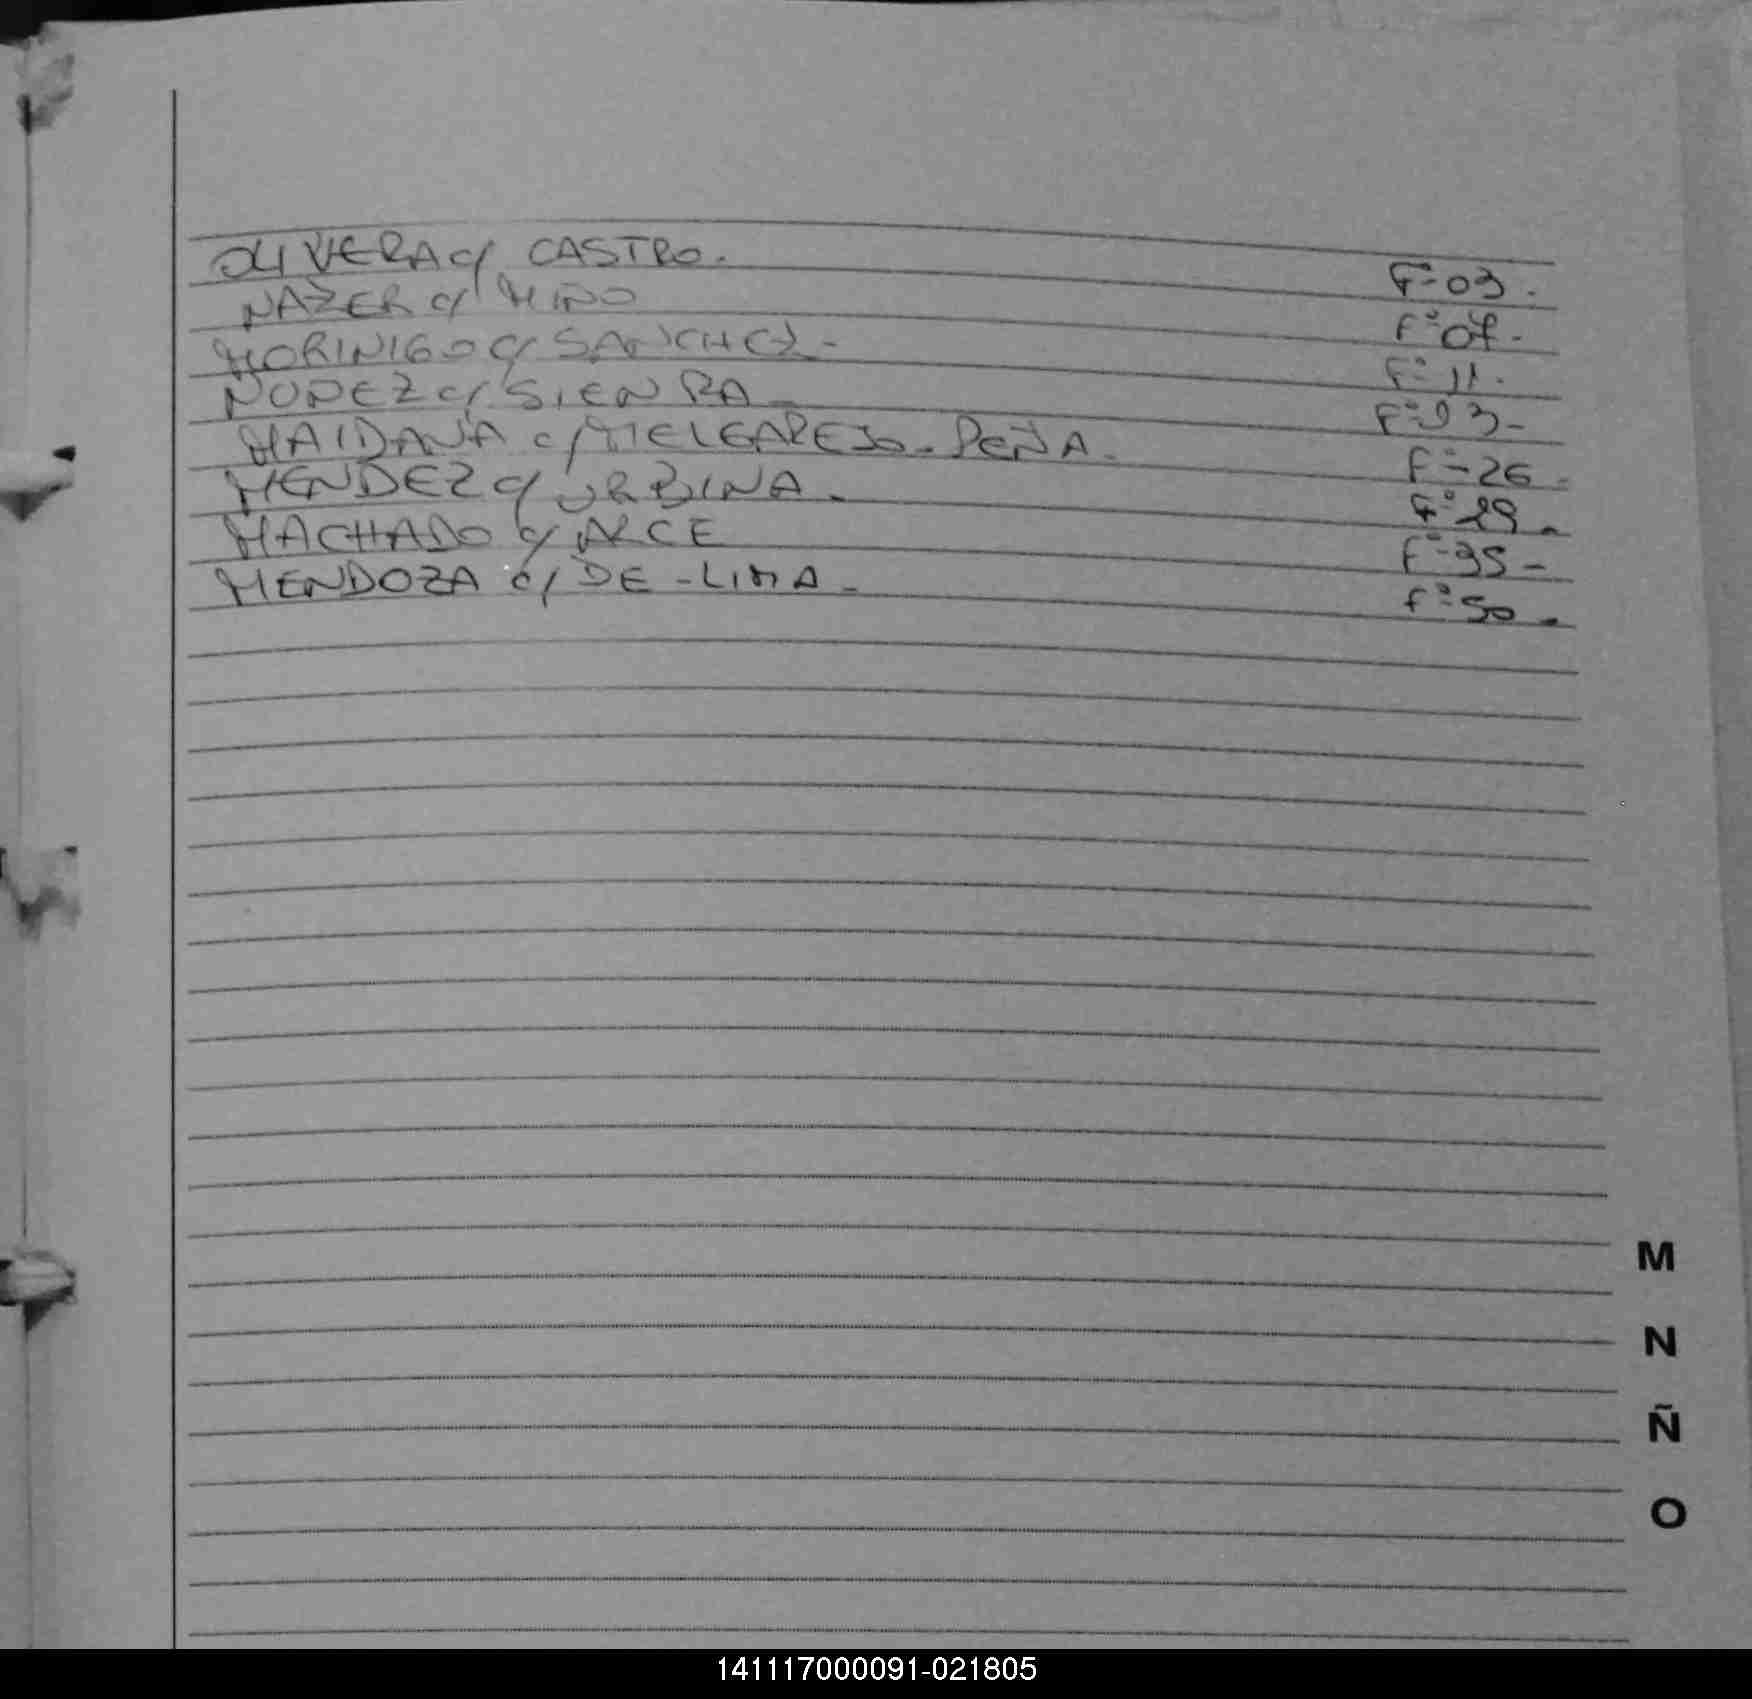 OLIVERA c/ CASTRO. F° 03.
NAZER c/ MIÑO F° 07.
MORINIGO c/ SANCHEZ - F° 11.
NUÑEZ c/ SIENRA - F° 3-
MAIDANA c/ MELGAREJO - PEÑA. F° 26.
MENDEZ c/ URBINA. F° 29.
MACHADO c/ ARCE F° 35 -
MENDOZA c/ DE - LIMA - F° 50.
M
N
Ñ
O
141117000091-021805